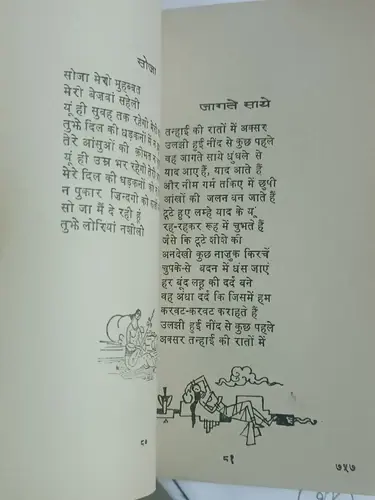 सोजा
सोजा मेरी मुहब्बत
मेरी बेज़बां सहेली
यूं ही सुबह तक रहेगी
तुझे दिल की धड़कनों
तेरे आंसुओं की क़ीमत
यूं ही उम्र भर रहेगी
मेरे दिल की धड़कनों को
न पुकार ज़िन्दगी को
सो जा मैं दे रही हूं
तुझे लोरियां नशीली
८०
जागते साये
तन्हाई की रातों में अक्सर
उलझी हुई नींद से कुछ पहले
वह जागते साये धुंधले से
याद आए हैं, याद आते हैं
और नीम गर्म तकिए में छुपी
आंखों की जलन बन जाते हैं
टूटे हुए लम्हे याद के यूं
रह-रहकर रूह में चुभते हैं
जैसे कि टूटे शीशे की
अनदेखी कुछ नाजुक किरचें
चुपके-से बदन में धंस जाएं
हर बूंद लहू की दर्द बने
वह अंधा दर्द कि जिसमें हम
करवट-करवट कराहते हैं
उलझी हुई नींद से कुछ पहले
अक्सर तन्हाई की रातों में
८१
७५७